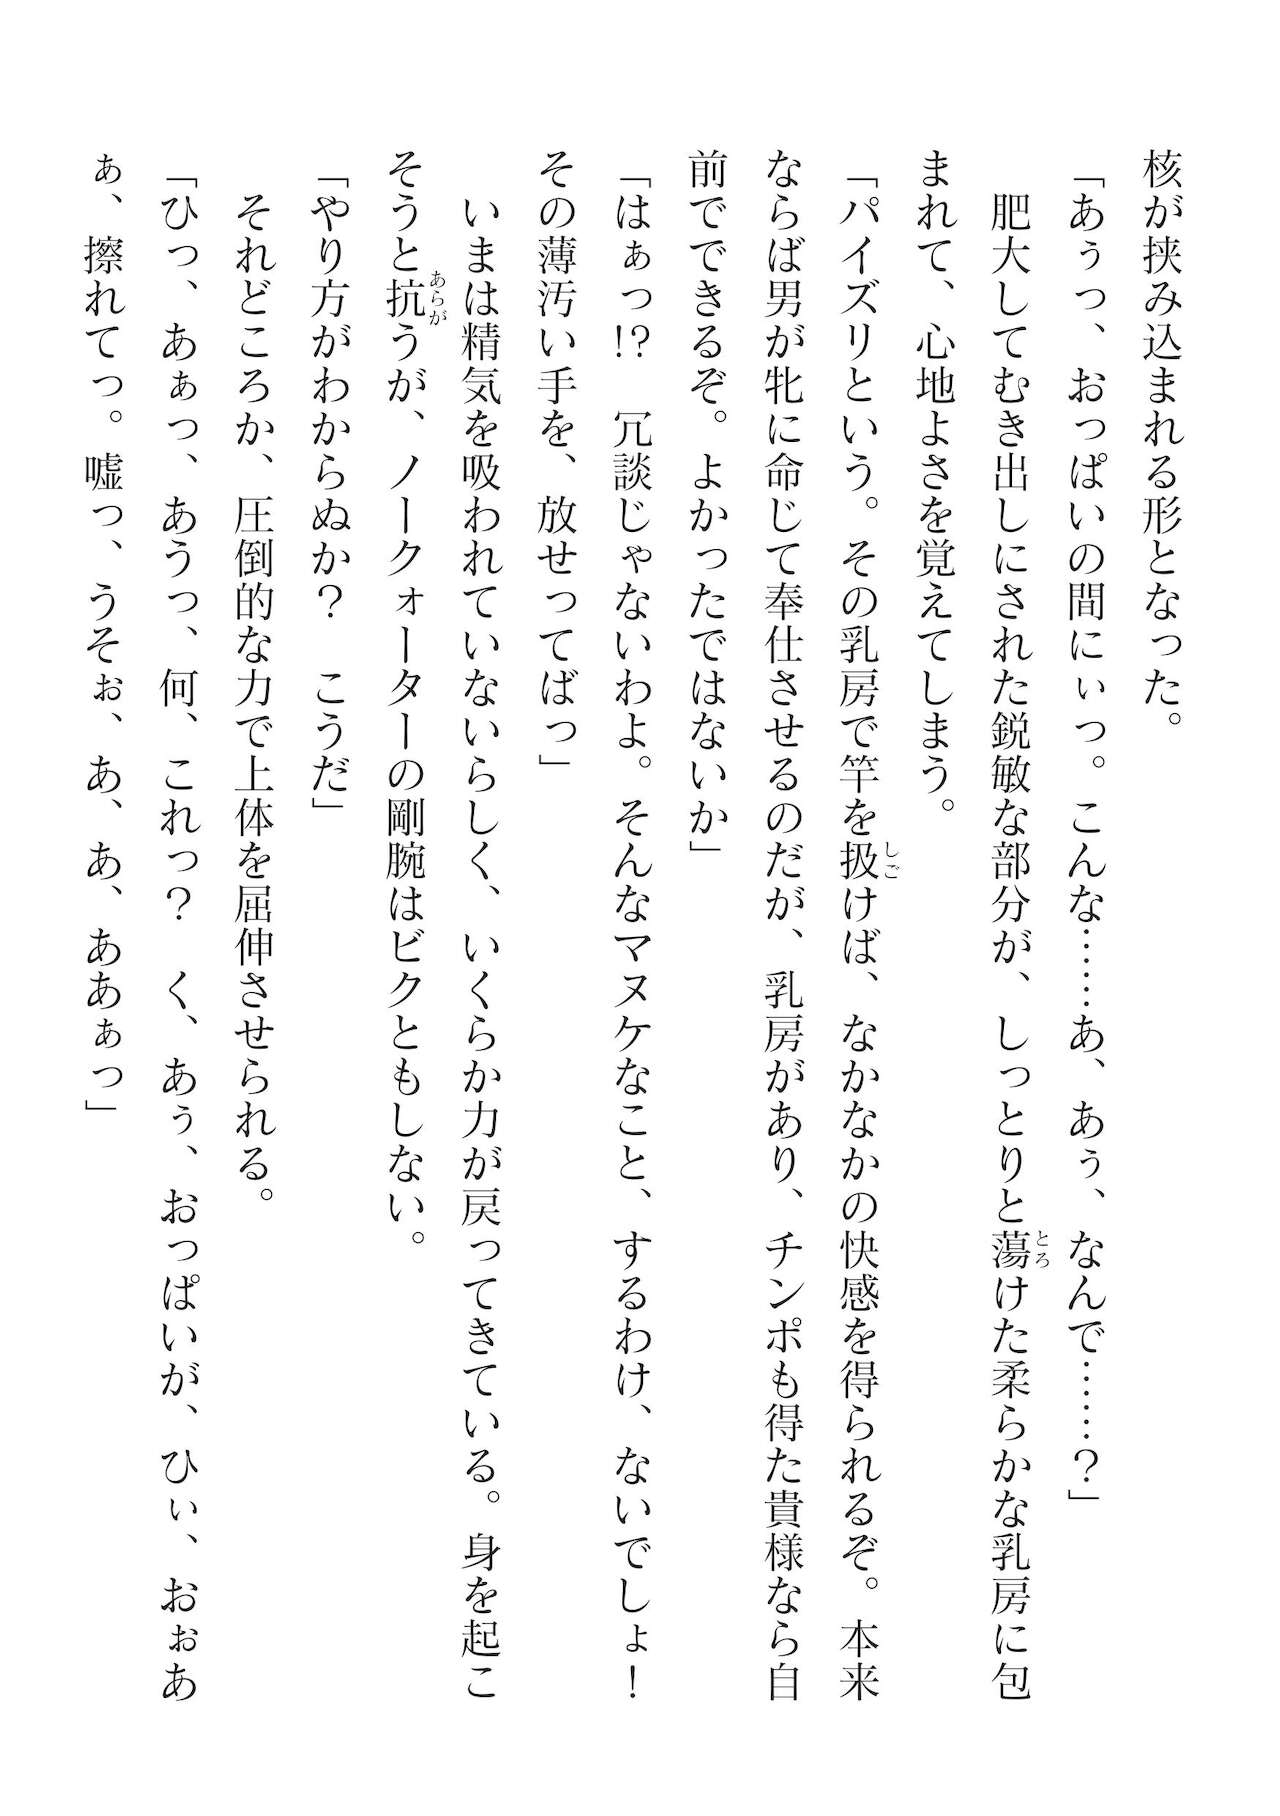 核が挟み込まれる形となった。
「あぅっ、おっぱいの間にぃっ。こんな……あ、あぅ、なんで……？」
　肥大してむき出しにされた鋭敏な部分が、しっとりと蕩けた柔らかな乳房に包
まれて、心地よさを覚えてしまう。
「パイズリという。その乳房で竿を扱けば、なかなかの快感を得られるぞ。本来
ならば男が牝に命じて奉仕させるのだが、乳房があり、チンポも得た貴様なら自
前でできるぞ。よかったではないか」
「はぁっ!?　冗談じゃないわよ。そんなマヌケなこと、するわけ、ないでしょ！
その薄汚い手を、放せってばっ」
　いまは精気を吸われていないらしく、いくらか力が戻ってきている。身を起こ
そうと抗うが、ノークォーターの剛腕はビクともしない。
「やり方がわからぬか？　こうだ」
　それどころか、圧倒的な力で上体を屈伸させられる。
「ひっ、あぁっ、あうっ、何、これっ？　く、あぅ、おっぱいが、ひぃ、おぉあ
ぁ、擦れてっ。嘘っ、うそぉ、あ、あ、ああぁっ」